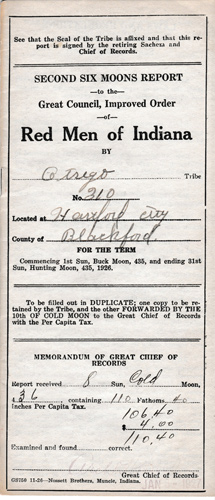 See that the Seal of the Tribe is affixed and that this re-
port is signed by the retiring Sachem and
Chief of Records.
SECOND SIX MOONS REPORT
—to the—
Great Council, Improved Order
—of—
Red Men of Indiana
BY
Otsego Tribe
No. 310
Located at Hartford City
County of Blackford.
FOR THE TERM
Commencing 1st Sun, Buck Moon, 435, and ending 31st
Sun, Hunting Moon, 435, 1926.
To be filled out in DUPLICATE; one copy to be re-
tained by the Tribe, and the other FORWARDED BY THE
10th OF COLD MOON to the Great Chief of Records
with the Per Capita Tax.
MEMORANDUM OF GREAT CHIEF OF
RECORDS
Report received 8 Sun, Cold Moon,
436, containing 110 Fathoms 40
Inches Per Capita Tax.
106.40
4.00
110.40
Examined and found correct.
Great Chief of Records
11-26—Nossett Brothers, Muncie, Indiana.